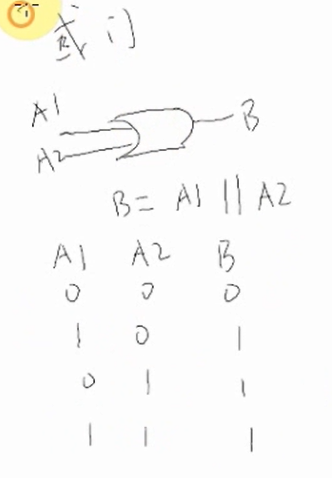 或门
A1
B
A2
B = A1 || A2
A1 A2 B
0 0 0
1 0 1
0 1 1
1 1 1